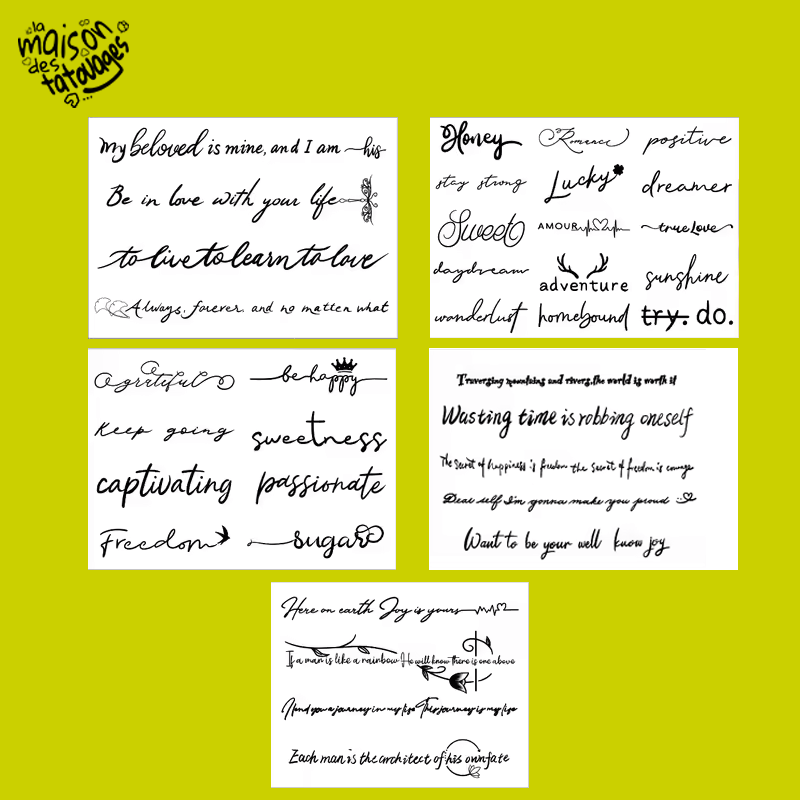 la
maison
des
tatouages
My beloved is mine, and I am his
Be in love with your life
to live to learn to love
Always, forever, and no matten what
Honey
Romance
positive
stay strong
Lucky
dreamer
Sweet
AMOUR
true Love
daydream
adventure
sunshine
wanderlust
homebound
try. do.
grateful
be happy
Keep going
sweetness
captivating
passionate
Freedom
sugar
Traversing mountains and rivers, the world is worth it
Wasting time is robbing oneself
The Secret of happiness is freedom the secret of freedom is courage
Dear self I'm gonna make you proud
Want to be your well know joy
Here on earth Joy is yours
If a man is like a rainbow He will know there is one above
you a journey in my life This journey is my life
Each man is the architect of his own fate